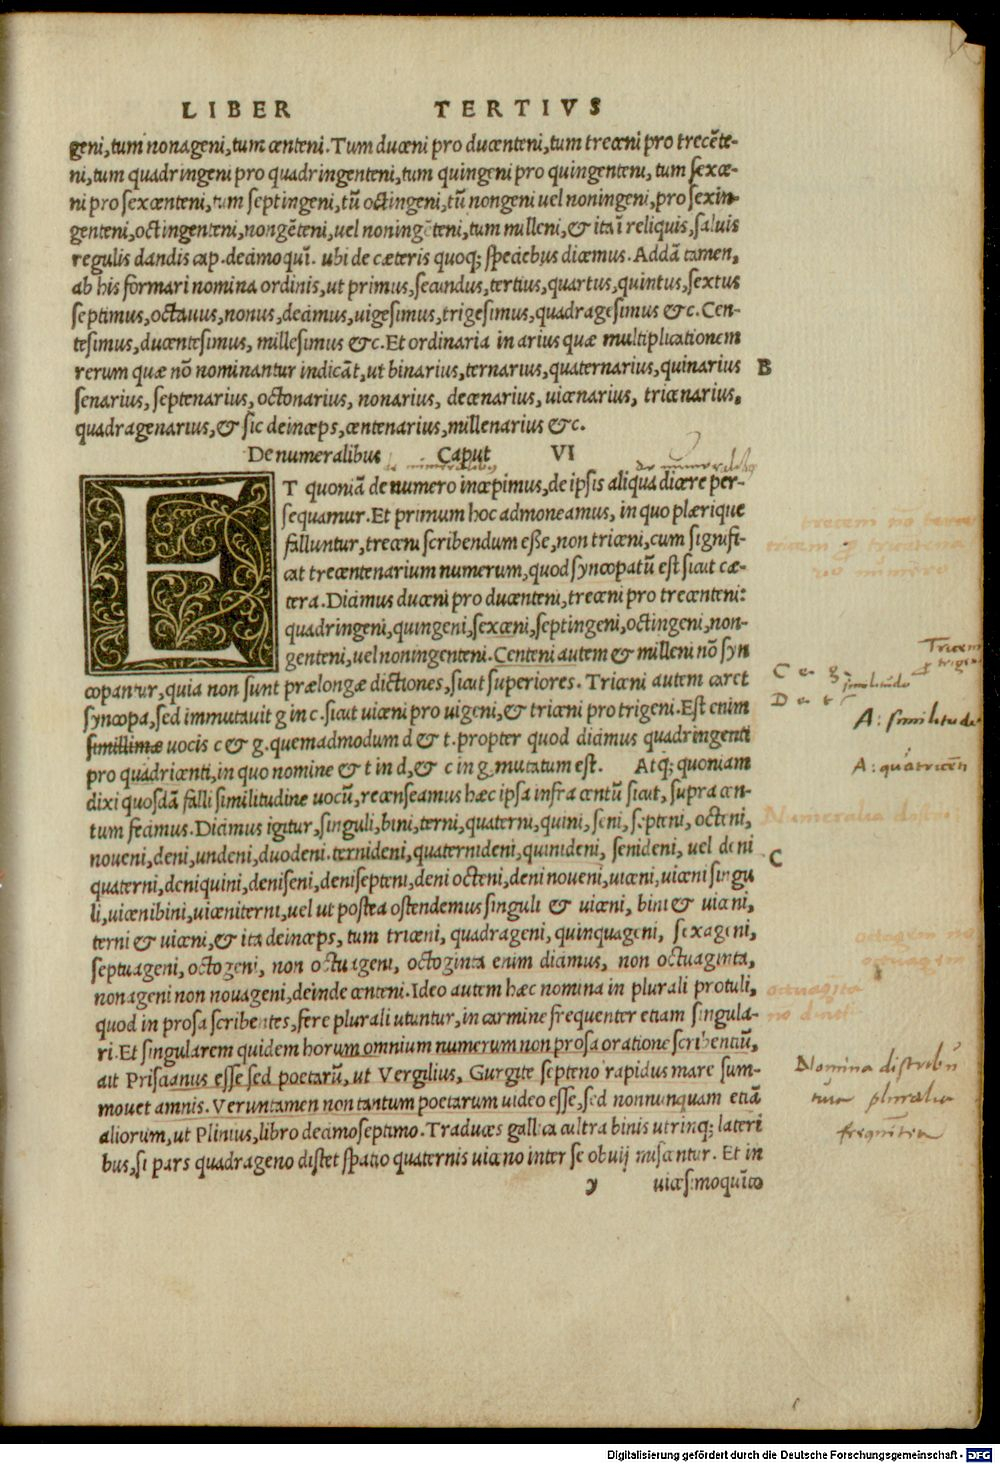 LIBER TERTIVS
geni,tum nonageni,tum centeni.Tum duceni pro ducenteni,tum treceni pro trecẽte-
ni,tum quadringeni pro quadringenteni,tum quingeni pro quingenteni, tum sexce-
ni pro sexcenteni,tum septingeni,tũ octingeni,tũ nongeni uel noningeni,pro sexin-
genteni,octingenteni,nongẽteni,uel noningẽteni,tum milleni,& ita ĩ reliquis,saluis
regulis dandis cap.decimo quĩ. ubi de cæteris quoq; speciebus dicemus.Addã tamen,
ab his formari nomina ordinis,ut primus,secundus,tertius,quartus,quintus,sextus
septimus,octauus,nonus,decimus,uigesimus,trigesimus,quadragesimus &c.Cen-
tesimus,ducentesimus, millesimus &c.Et ordinaria in arius quæ multiplicationem
rerum quæ nõ nominantur indicãt,ut binarius,ternarius,quaternarius,quinarius
B
senarius,septenarius,octonarius, nonarius, decenarius, uicenarius, tricenarius,
quadragenarius,& sic deinceps,centenarius,millenarius &c.
De numeralibus Caput VI
ET quoniã de numero incepimus,de ipsis aliqua dicere per-
sequamur.Et primum hoc admoneamus, in quo plærique
falluntur,treceni scribendum esse,non triceni,cum signifi-
cat trecentenarium numerum,quod syncopatũ est sicut cæ-
tera.Dicimus duceni pro ducenteni,treceni pro trecenteni:
quadringeni,quingeni,sexceni,septingeni,octingeni,non-
genteni,uel noningenteni.Centeni autem & milleni nõ syn
copantur,quia non sunt prælongæ dictiones,sicut superiores. Triceni autem caret
syncopa,sed immutauit g in c.sicut uiceni pro uigeni,& triceni pro trigeni.Est enim
A: similitudo
simillimæ uocis c & g.quemadmodum d & t.propter quod dicimus quadringenti
pro quadricenti,in quo nomine & t in d,& c in g mutatum est. Atq; quoniam
dixi quosdã falli similitudine uocũ,recenseamus hæc ipsa infra centũ sicut, supra cen-
Numeralia distri
tum fecimus.Dicimus igitur,singuli,bini,terni,quaterni,quini,seni,septeni,octeni,
noueni,deni,undeni,duodeni.ternideni,quaternideni,quinideni, senideni, uel deni
C
quaterni,deniquini,deniseni,denisepteni,deni octeni,deni noueni,uiceni,uiceni singu
li,uicenibini,uiceniterni,uel ut postea ostendemus singuli & uiceni, bini & uiceni,
terni & uiceni,& ita deinceps, tum triceni, quadrageni, quinquageni, sexageni,
septuageni, octogeni, non octuageni, octoginta enim dicimus, non octuaginta,
nonageni non nouageni,deinde centeni.Ideo autem hæc nomina in plurali protuli,
quod in prosa scribentes,fere plurali utuntur,in carmine frequenter etiam singula-
ri.Et singularem quidem horum omnium numerum non prosa oratione scribentiũ,
ait Priscianus esse sed poetarũ, ut Vergilius, Gurgite septeno rapidus mare sum-
Nomina distribu
mouet amnis.Veruntamen non tantum poetarum uideo esse,sed nonnunquam etiã
tiua pluralia
aliorum,ut Plinius,libro decimoseptimo.Traduces gallica cultra binis utrinq; lateri
bus,si pars quadrageno distet spatio quaternis uiceno inter se obuij misceantur. Et in
y uicesimoquĩto